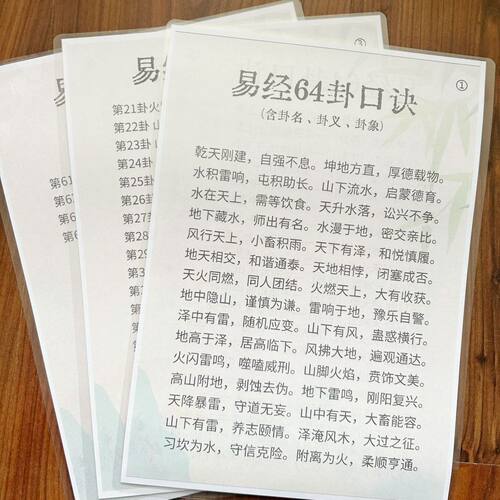 ①
易经64卦口诀
(含卦名、卦义、卦象)
乾天刚建，自强不息。坤地方直，厚德载物。
水积雷响，屯积助长。山下流水，启蒙德育。
水在天上，需等饮食。天升水落，讼兴不争。
地下藏水，师出有名。水漫于地，密交亲比。
风行天上，小畜积雨。天下有泽，和悦慎履。
地天相交，和谐通泰。天地相悖，闭塞成否。
天火同燃，同人团结。火燃天上，大有收获。
地中隐山，谨慎为谦。雷响于地，豫乐自警。
泽中有雷，随机应变。山下有风，蛊惑横行。
地高于泽，居高临下。风拂大地，遍观通达。
火闪雷鸣，噬嗑威刑。山脚火焰，贲饰文美。
高山附地，剥蚀去伪。地下雷鸣，刚阳复兴。
天降暴雷，守道无妄。山中有天，大畜能容。
山下有雷，养志颐情。泽淹风木，大过之征。
习坎为水，守信克险。附离为火，柔顺亨通。
③
易
第21卦火
第22卦 山
第23卦 山
第24卦
第25卦
第26卦
第27卦
第28
第29
第3
第3
第61
第6
第6